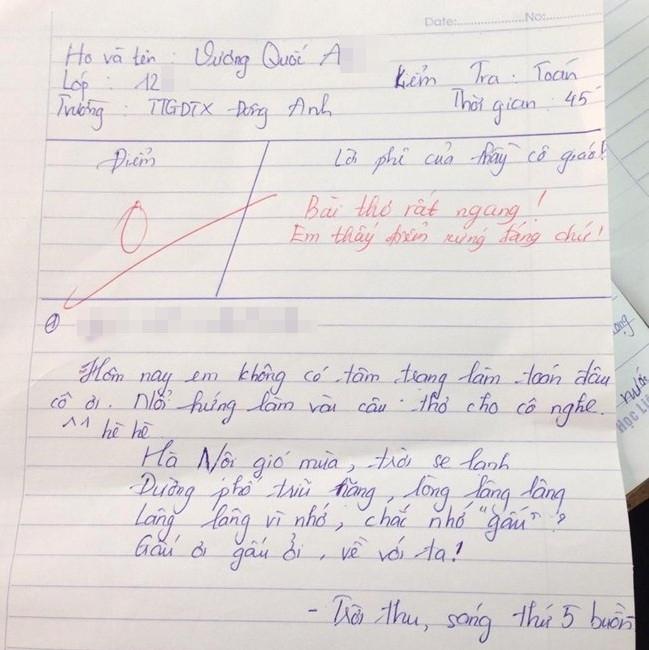 Date: No:
Họ và tên : Vương Quốc A
Lớp : 12
Kiểm Tra : Toán
Trường : TTGDTX Đông Anh
Thời gian : 45'
Điểm
Lời phê của thầy cô giáo!
0
Bài thơ rất ngang!
Em thấy điểm xứng đáng chứ!
1
Hôm nay em không có tâm trạng làm toán đâu
cô ơi. Nổi hứng làm vài câu thơ cho cô nghe.
^^ hè hè
Hà Nội gió mùa, trời se lạnh
Đường phố trĩu nặng, lòng lâng lâng
Lâng lâng vì nhớ, chắc nhớ "gấu"?
Gấu ơi gấu ới, về với ta!
- Trời thu, sáng thứ 5 buồn
Học Li